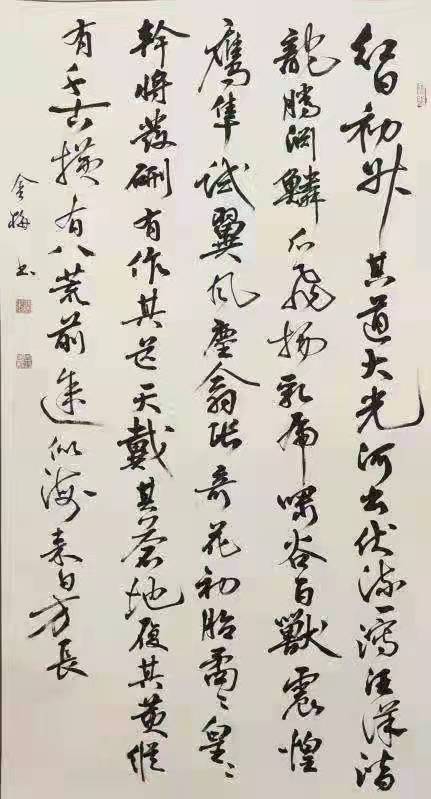 紅日初升其道大光河出伏流一瀉汪洋潛
龍騰渊鱗爪飛揚乳虎嘯谷百獸震惶
鷹隼試翼風塵翕張奇花初胎矞〻皇〻
幹將發硎有作其芒天戴其蒼地履其黄縱
有千古横有八荒前途似海来日方長
金梅书